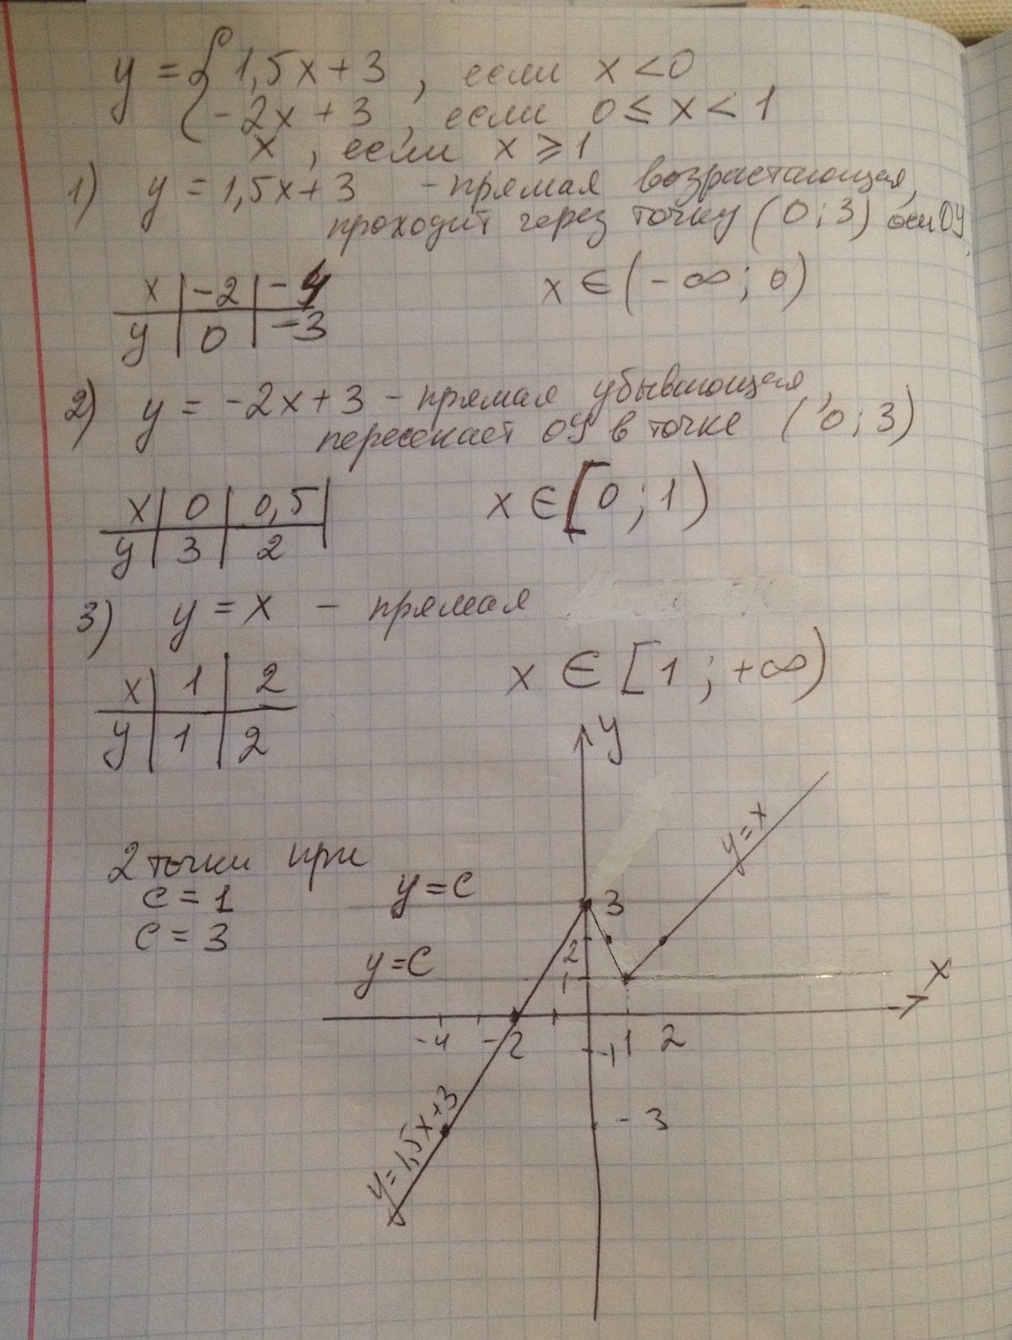 y = { 1,5x + 3 , если x < 0
-2x + 3 , если 0 ≤ x < 1
x , если x ⩾ 1
1) y = 1,5x + 3 - прямая возрастающая,
проходит через точку (0 ; 3) оси ОУ.
x | -2 | -4
y | 0 | -3
x ∈ (- ∞ ; 0)
2) y = -2x + 3 - прямая убывающая,
пересекает ОУ в точке (0 ; 3)
x | 0 | 0,5 |
y | 3 | 2 |
x ∈ [0 ; 1)
3) y = x - прямая
x | 1 | 2
y | 1 | 2
x ∈ [1 ; +∞)
y
y = x
2 точки при
c = 1
c = 3
y = c
3
y = c
2
1
x
-4 -2 1 2
-1
-3
y = 1,5x+3